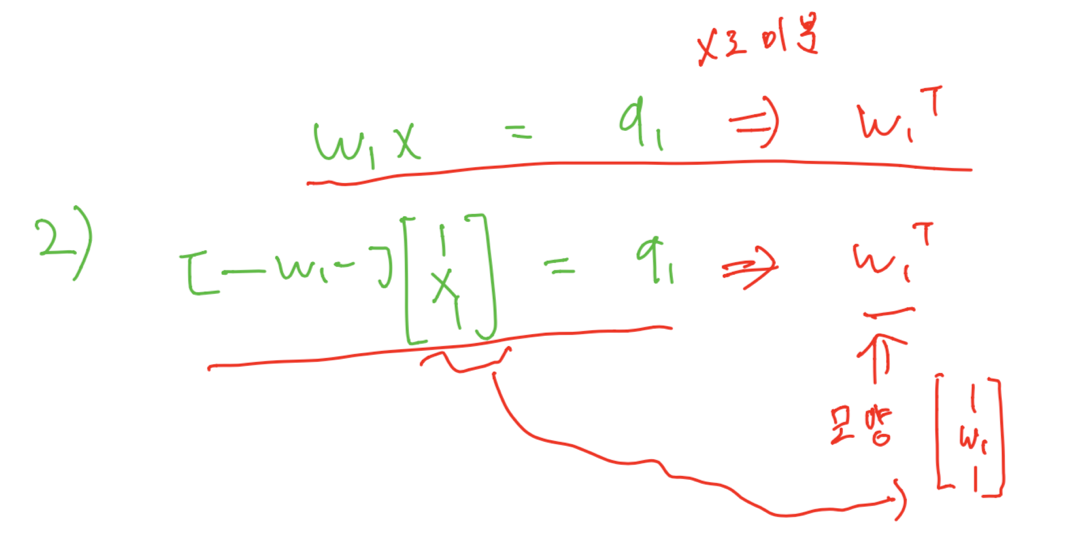 x로 미분
w₁x = q₁ ⇒ w₁ᵀ
2) [—w₁-] [| x |] = q₁ ⇒ w₁ᵀ
⇑
모양 [| w₁ |]